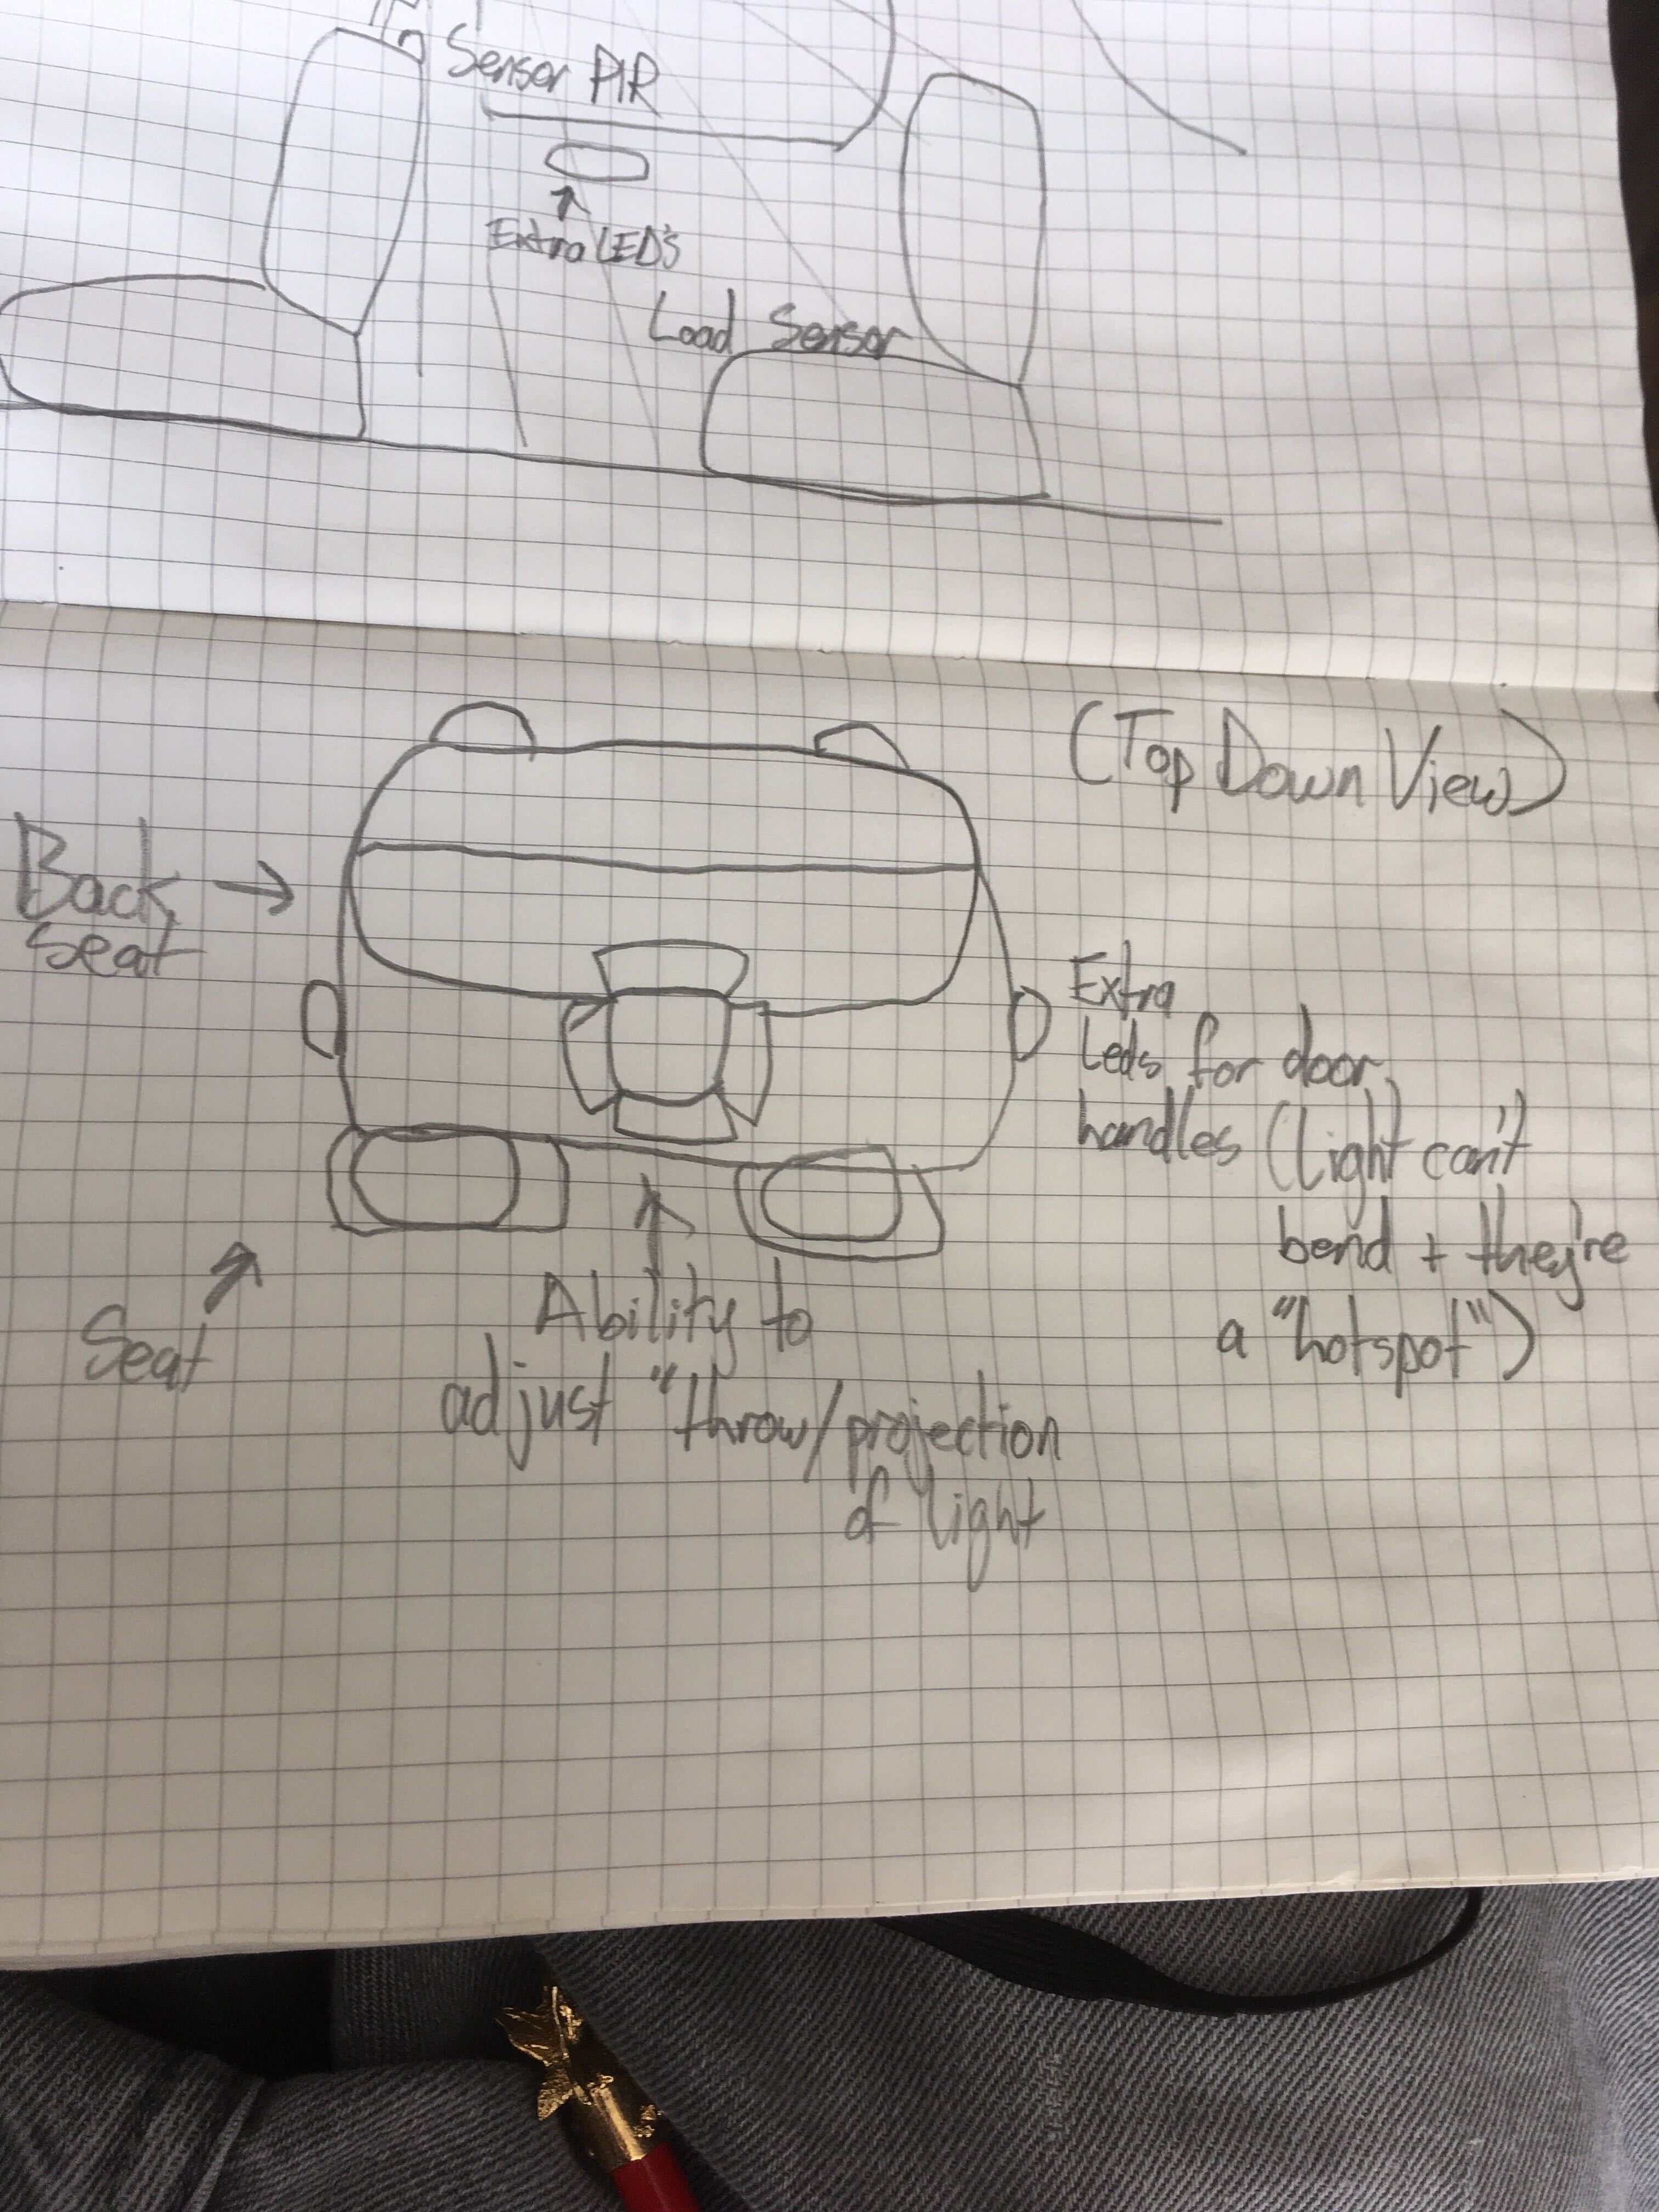 Sensor PIR
Extra LED's
Load Sensor
(Top Down View)
Back
seat
Extra
Leds for door
handles (Light can't
bend + they're
a "hotspot")
Seat
Ability to
adjust "throw/projection
of light